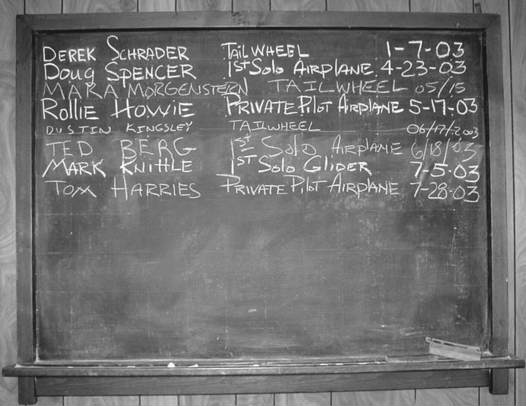 DEREK SCHRADER TAILWHEEL 1-7-03
Doug SPENCER 1ST Solo AIRPLANE 4-23-03
MARA MORGENSTERN TAILWHEEL 05/15
Rollie Howie PRIVATE PILOT AIRPLANE 5-17-03
DUSTIN KINGSLEY TAILWHEEL 06/17/2003
TED BERG 1st SOLO AIRPLANE 6/18/03
MARK KNITTLE 1ST Solo GLIDER 7-5-03
TOM HARRIES PRIVATE PILOT AIRPLANE 7-28-03